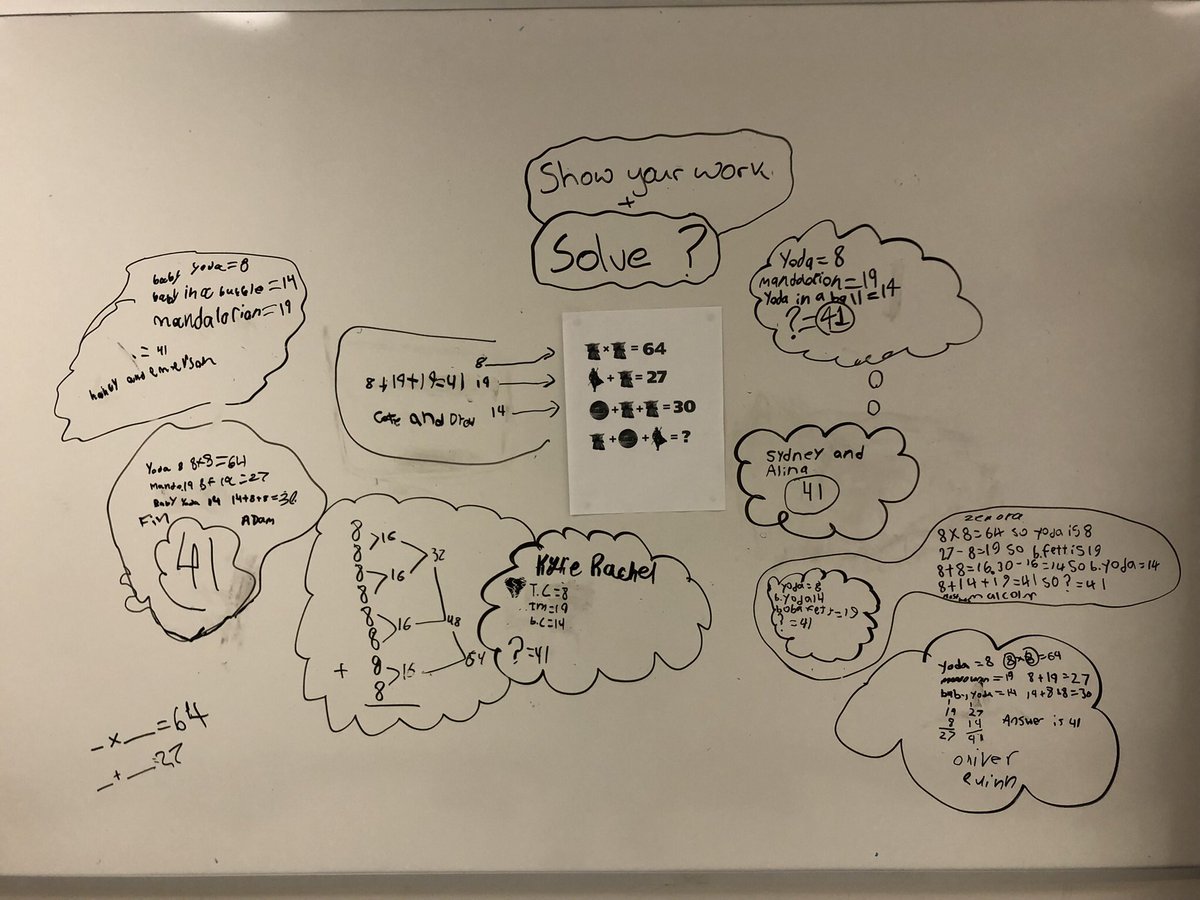 Show your work
+
Solve ?
baby yoda=8
baby in a bubble=14
mandalorian=19
.= 41
8
8+19+19=41 19
14
and
× = 64
+ = 27
+ + = 30
+ + = ?
Yoda = 8
mandalorian=19
Yoda in a ball=14
?=41
Sydney and
Alina
41
Yoda 8 8×8=64
Mando 19 8+19=27
Baby Yoda 14 14+8+8=30
Fin ADam
41
8
8 >16
8 32
8 >16
8
8 >16 48
+ 8 >16 64
8
Kylie Rachel
T.C=8
Tm=19
b.C=14
?=41
8×8=64 so yoda is 8
27-8=19 so b.fett is 19
8+8=16,30-16=14 so b.yoda=14
8+14+19=41 so ?=41
malcolm
Yoda=8
b.yoda14
boba fett=19
?=41
Yoda =8 8×8=64
=19 8+19=27
baby yoda=14 14+8+8=30
1 1
19 27
8 14 Answer is 41
27 41
oliver
Quinn
_×__=64
_+__=27